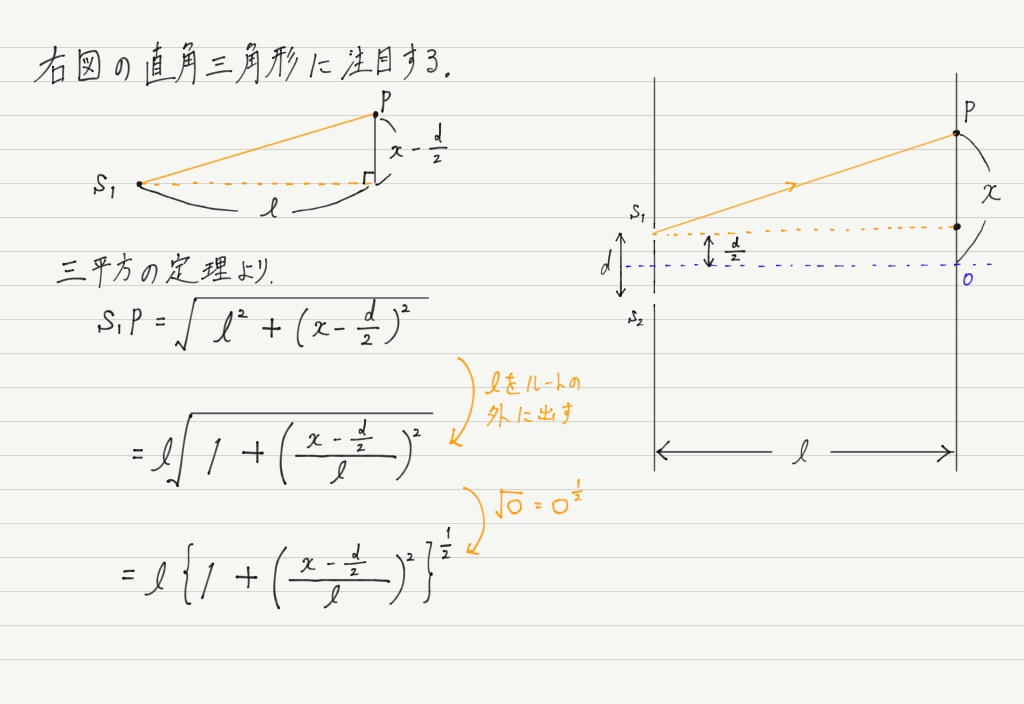 右図の直角三角形に注目する.
P
x - d/2
S₁
l
三平方の定理より.
S₁P = √(l² + (x - d/2)²)
lをルートの
外に出す
= l√(1 + ((x - d/2)/l)²)
√○ = ○^(1/2)
= l{1 + ((x - d/2)/l)²}^(1/2)
P
x
S₁
d
d/2
O
S₂
l